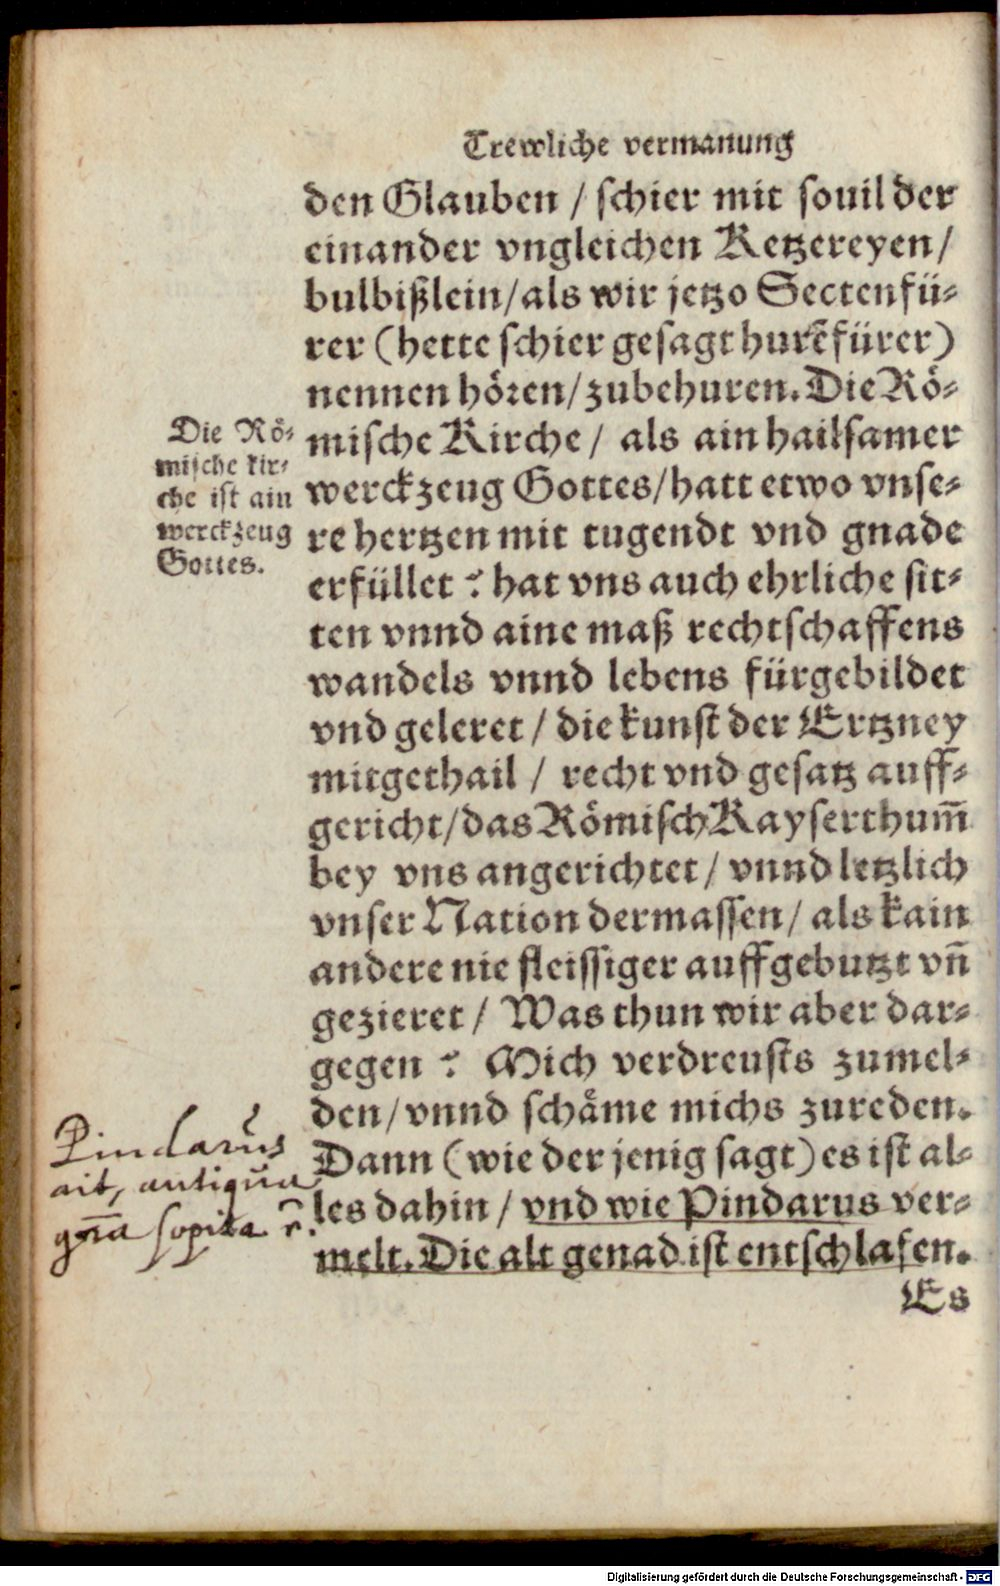 Trewliche vermanung
den Glauben / schier mit souil der
einander vngleichen Ketzereyen /
bulbißlein / als wir jetzo Sectenfü-
rer (hette schier gesagt hurẽfürer)
nennen hören / zubehuren. Die Rö-
mische Kirche / als ain hailsamer
werckzeug Gottes / hatt etwo vnse-
re hertzen mit tugendt vnd gnade
erfüllet ? hat vns auch ehrliche sit-
ten vnnd aine maß rechtschaffens
wandels vnnd lebens fürgebildet
vnd geleret / die kunst der Ertzney
mitgethail / recht vnd gesatz auff-
gericht / das Römisch Kayserthum̃
bey vns angerichtet / vnnd letzlich
vnser Nation dermassen / als kain
andere nie fleissiger auffgebutzt vñ
gezieret / Was thun wir aber dar-
gegen ? Mich verdreusts zumel-
den / vnnd schäme michs zureden.
Dann (wie der jenig sagt) es ist al-
les dahin / vnd wie Pindarus ver-
melt. Die alt genad ist entschlafen.
Es
Die Rö-
mische kir-
che ist ain
werckzeug
Gottes.
Pindarus
ait, antiqua
gr̃a sopita
Digitalisierung gefördert durch die Deutsche Forschungsgemeinschaft - DFG